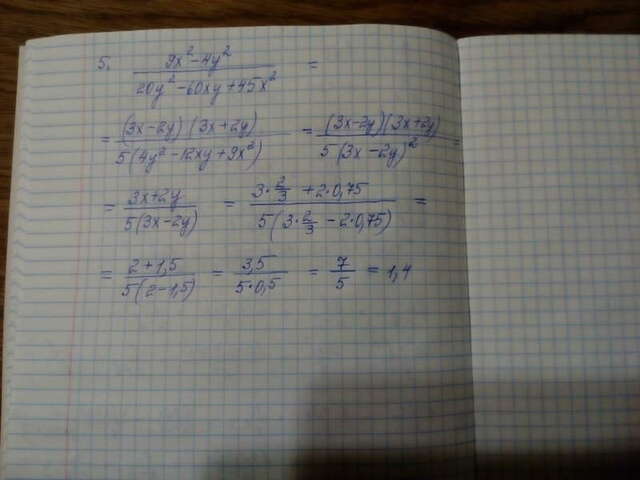 5. (9x² - 4y²) / (20y² - 60xy + 45x²) =
= (3x - 2y)(3x + 2y) / 5(4y² - 12xy + 9x²) = (3x - 2y)(3x + 2y) / 5(3x - 2y)² =
= (3x + 2y) / 5(3x - 2y) = (3 · 2/3 + 2 · 0,75) / 5(3 · 2/3 - 2 · 0,75) =
= (2 + 1,5) / 5(2 - 1,5) = 3,5 / 5 · 0,5 = 7/5 = 1,4